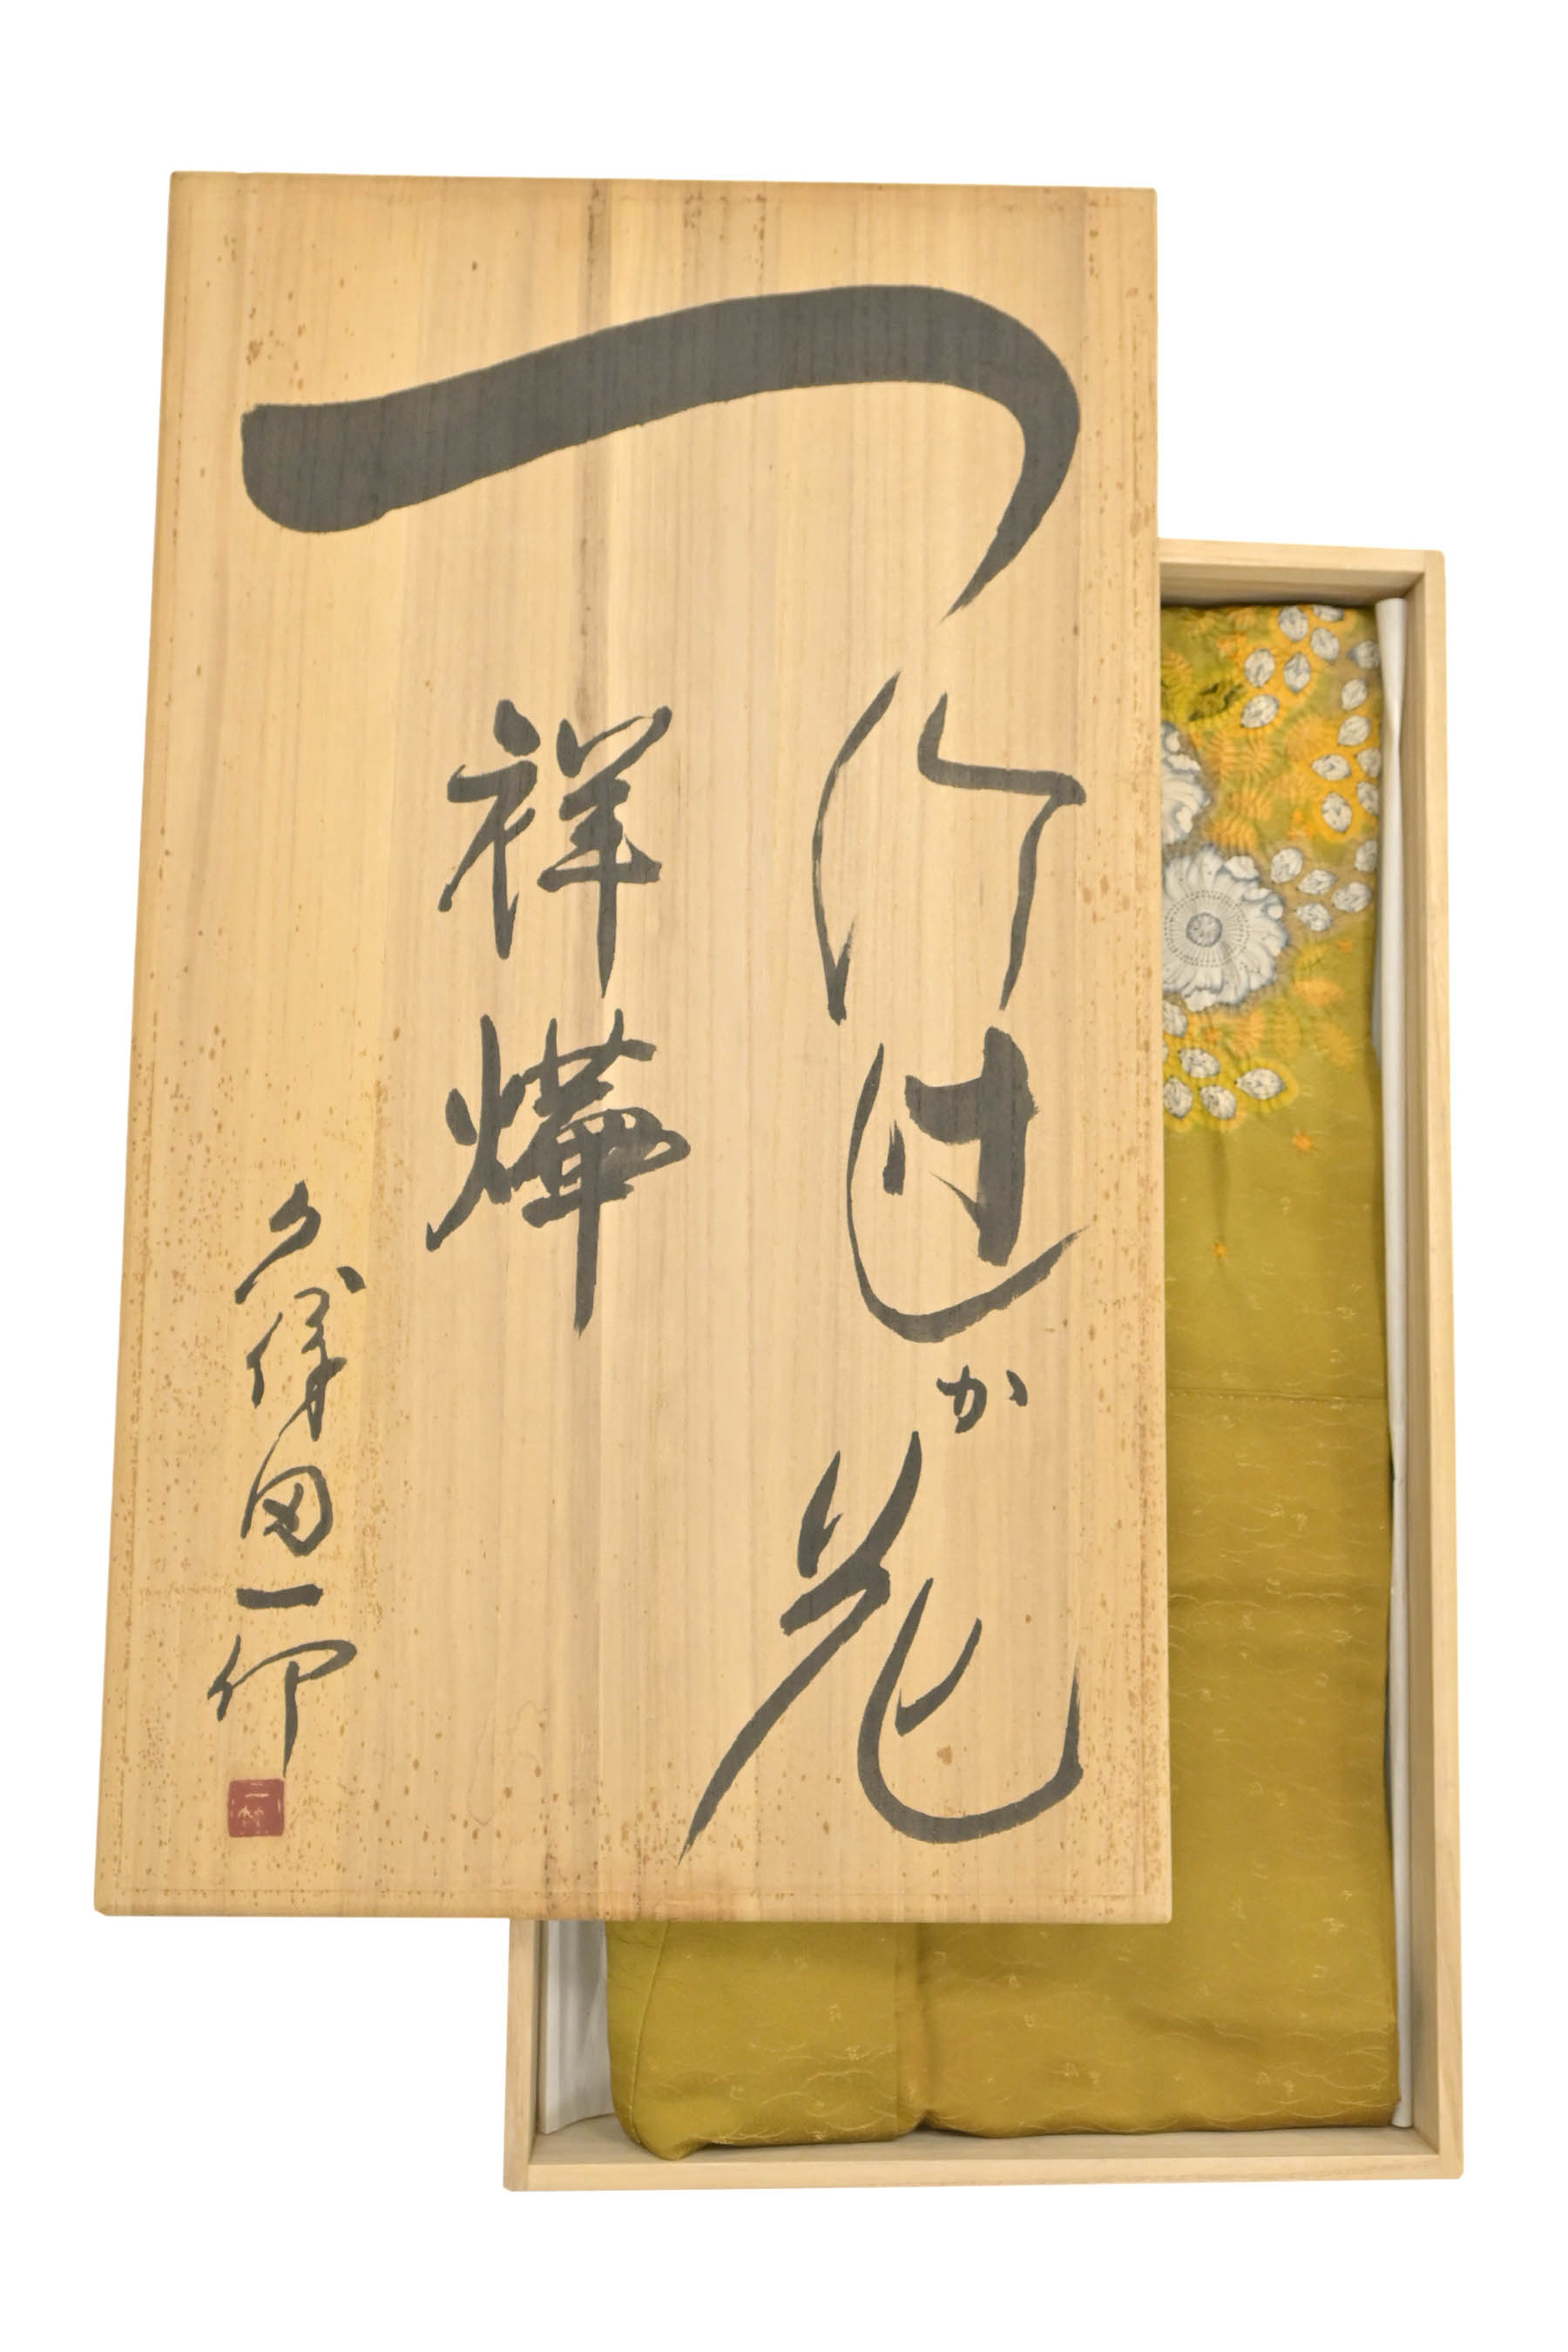 一竹辻か花
祥燁
久保田一竹
一竹